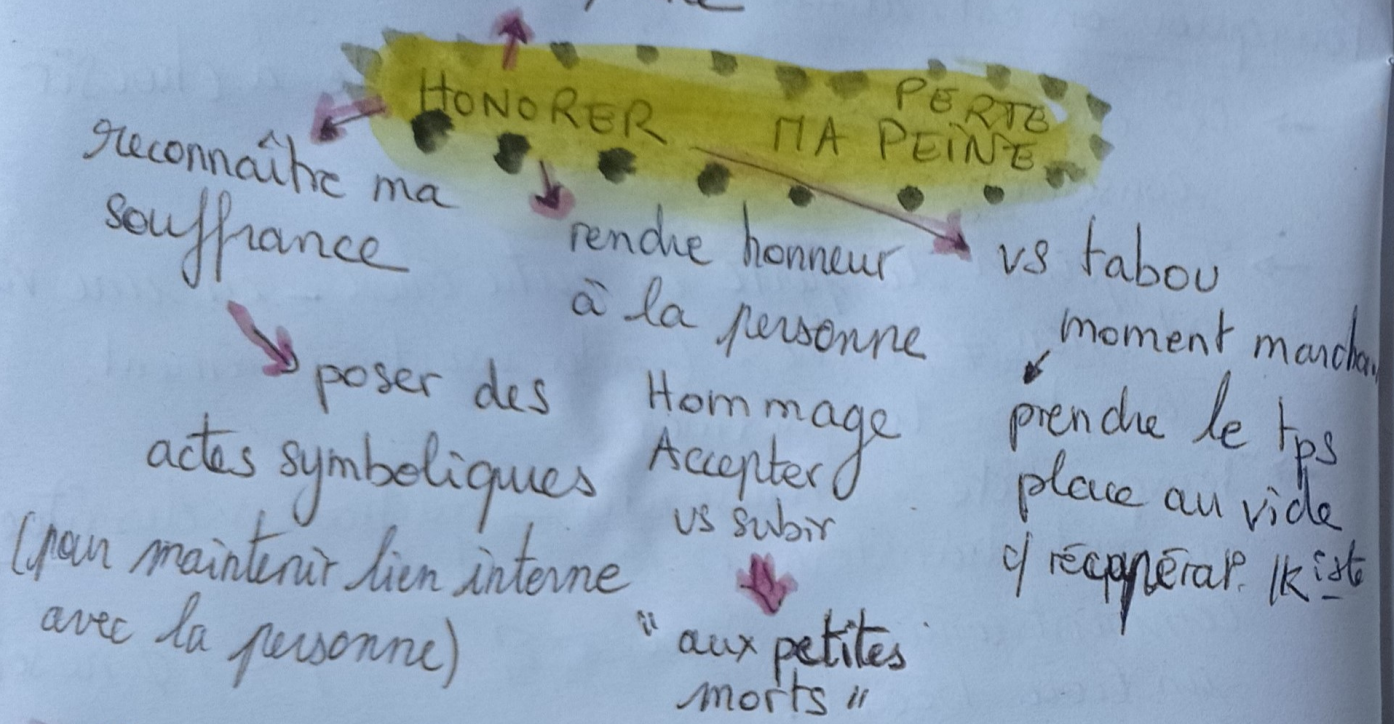 HONORER MA PEINE
PERTE
reconnaître ma
souffrance
poser des
actes symboliques
(pour maintenir lien interne
avec la personne)
rendre honneur
à la personne
Hommage
Accepter
vs subir
"aux petites
morts"
vs tabou
moment
prendre le tps
place au vide
c/ récupérat°